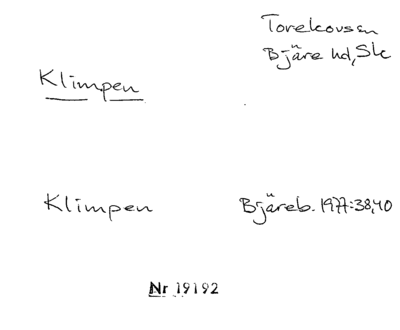 Torekovs sn
Bjäre hd, Sk
Klimpen
Klimpen Bjäreb. 1977:38,40
Nr 19192